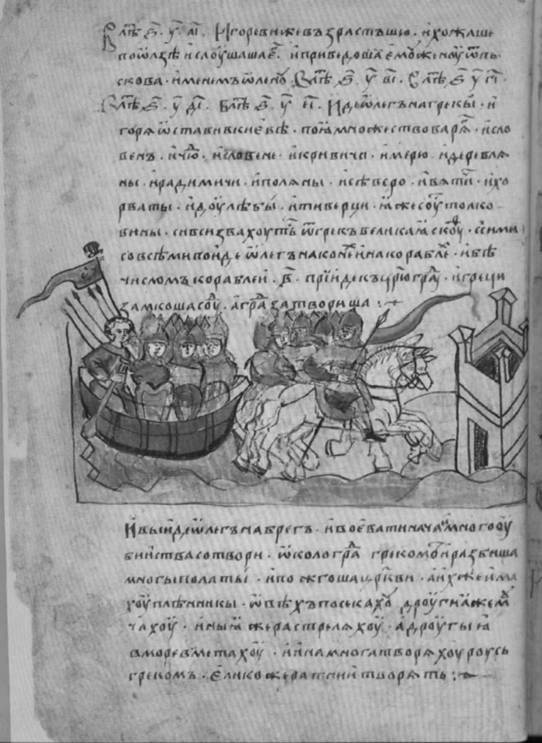 В лѣ҇т ҂ѕ҃. у҃. а҃і. Игореви же възрастъшю. и хожаше
по ѡлзѣ и слоушаше. и приведоша емоу женоу ѿ пь
скова. именемъ ѡленоу В лѣ҇т ҂ѕ҃. у҃. в҃і. В лѣ҇т ҂ѕ҃ у҃ г҃і.
В лѣ҇т ҂ѕ҃. у҃ д҃і. В лѣ҇т ҂ѕ҃. у҃ е҃і. Иде ѡлегъ на грекы. и
горѧ ѡстави в киевѣ. поꙗ множество варѧⷢ. и сло
венъ. и чюⷣ. и словене. и кривичи. и мерю. и деревлѧ
ны. и радимичи. и полѧны. и северо. и вѧтичи. и хо
рваты. и доулѣбы. и тиверци. ꙗже соуⷮ толко
вины. си вси звахоутьⷭ ѿ грекъ великаꙗ скоуⷴ. с сими
со всѣми поиде ѡлегъ на конѣⷯ и на кораблеⷯ. и бѣ
числомъ кораблеи. ҂в҃. прїиде къ цр҃юграⷣ. и греци
замкоша соуⷣ. а граⷣ затвориша
И выиде ѡлегъ на брегъ. и воевати начаⷮ. и много оу
биитва сотвори. ѡколо граⷣ грекомъ. и разбиша
многы полаты. и пожгоша цр҃кви. а иⷯ же има
хоу плѣнникы. ѡвѣхъ посекахоу дроугиꙗ же мⷱ
чахоу. иныꙗ же растрелѧхоу. а дроугыꙗ
в море вметахоу. и ина многа творѧхоу роусь
грекомъ. елико же ратнии творѧть